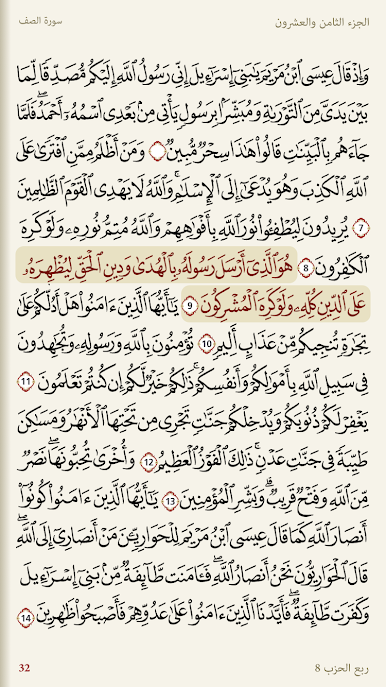 سورة الصف
الجزء الثامن والعشرون
وَإِذْ قَالَ عِيسَى ٱبْنُ مَرْيَمَ يَٰبَنِىٓ إِسْرَٰٓءِيلَ إِنِّى رَسُولُ ٱللَّهِ إِلَيْكُم مُّصَدِّقًا لِّمَا
بَيْنَ يَدَىَّ مِنَ ٱلتَّوْرَىٰةِ وَمُبَشِّرًۢا بِرَسُولٍ يَأْتِى مِنۢ بَعْدِى ٱسْمُهُۥٓ أَحْمَدُ ۖ فَلَمَّا
جَآءَهُم بِٱلْبَيِّنَٰتِ قَالُوا۟ هَٰذَا سِحْرٌ مُّبِينٌ وَمَنْ أَظْلَمُ مِمَّنِ ٱفْتَرَىٰ عَلَى
ٱللَّهِ ٱلْكَذِبَ وَهُوَ يُدْعَىٰٓ إِلَى ٱلْإِسْلَٰمِ ۚ وَٱللَّهُ لَا يَهْدِى ٱلْقَوْمَ ٱلظَّٰلِمِينَ
7 يُرِيدُونَ لِيُطْفِـُٔوا۟ نُورَ ٱللَّهِ بِأَفْوَٰهِهِمْ وَٱللَّهُ مُتِمُّ نُورِهِۦ وَلَوْ كَرِهَ
ٱلْكَٰفِرُونَ 8 هُوَ ٱلَّذِىٓ أَرْسَلَ رَسُولَهُۥ بِٱلْهُدَىٰ وَدِينِ ٱلْحَقِّ لِيُظْهِرَهُۥ
عَلَى ٱلدِّينِ كُلِّهِۦ وَلَوْ كَرِهَ ٱلْمُشْرِكُونَ 9 يَٰٓأَيُّهَا ٱلَّذِينَ ءَامَنُوا۟ هَلْ أَدُلُّكُمْ عَلَىٰ
تِجَٰرَةٍ تُنجِيكُم مِّنْ عَذَابٍ أَلِيمٍ 10 تُؤْمِنُونَ بِٱللَّهِ وَرَسُولِهِۦ وَتُجَٰهِدُونَ
فِى سَبِيلِ ٱللَّهِ بِأَمْوَٰلِكُمْ وَأَنفُسِكُمْ ۚ ذَٰلِكُمْ خَيْرٌ لَّكُمْ إِن كُنتُمْ تَعْلَمُونَ 11
يَغْفِرْ لَكُمْ ذُنُوبَكُمْ وَيُدْخِلْكُمْ جَنَّٰتٍ تَجْرِى مِن تَحْتِهَا ٱلْأَنْهَٰرُ وَمَسَٰكِنَ
طَيِّبَةً فِى جَنَّٰتِ عَدْنٍ ۚ ذَٰلِكَ ٱلْفَوْزُ ٱلْعَظِيمُ 12 وَأُخْرَىٰ تُحِبُّونَهَا ۖ نَصْرٌ
مِّنَ ٱللَّهِ وَفَتْحٌ قَرِيبٌ ۗ وَبَشِّرِ ٱلْمُؤْمِنِينَ 13 يَٰٓأَيُّهَا ٱلَّذِينَ ءَامَنُوا۟ كُونُوٓا۟
أَنصَارَ ٱللَّهِ كَمَا قَالَ عِيسَى ٱبْنُ مَرْيَمَ لِلْحَوَارِيِّـۧنَ مَنْ أَنصَارِىٓ إِلَى ٱللَّهِ ۖ
قَالَ ٱلْحَوَارِيُّونَ نَحْنُ أَنصَارُ ٱللَّهِ ۖ فَـَٔامَنَت طَّآئِفَةٌ مِّنۢ بَنِىٓ إِسْرَٰٓءِيلَ
وَكَفَرَت طَّآئِفَةٌ ۖ فَأَيَّدْنَا ٱلَّذِينَ ءَامَنُوا۟ عَلَىٰ عَدُوِّهِمْ فَأَصْبَحُوا۟ ظَٰهِرِينَ 14
32
ربع الحزب 8